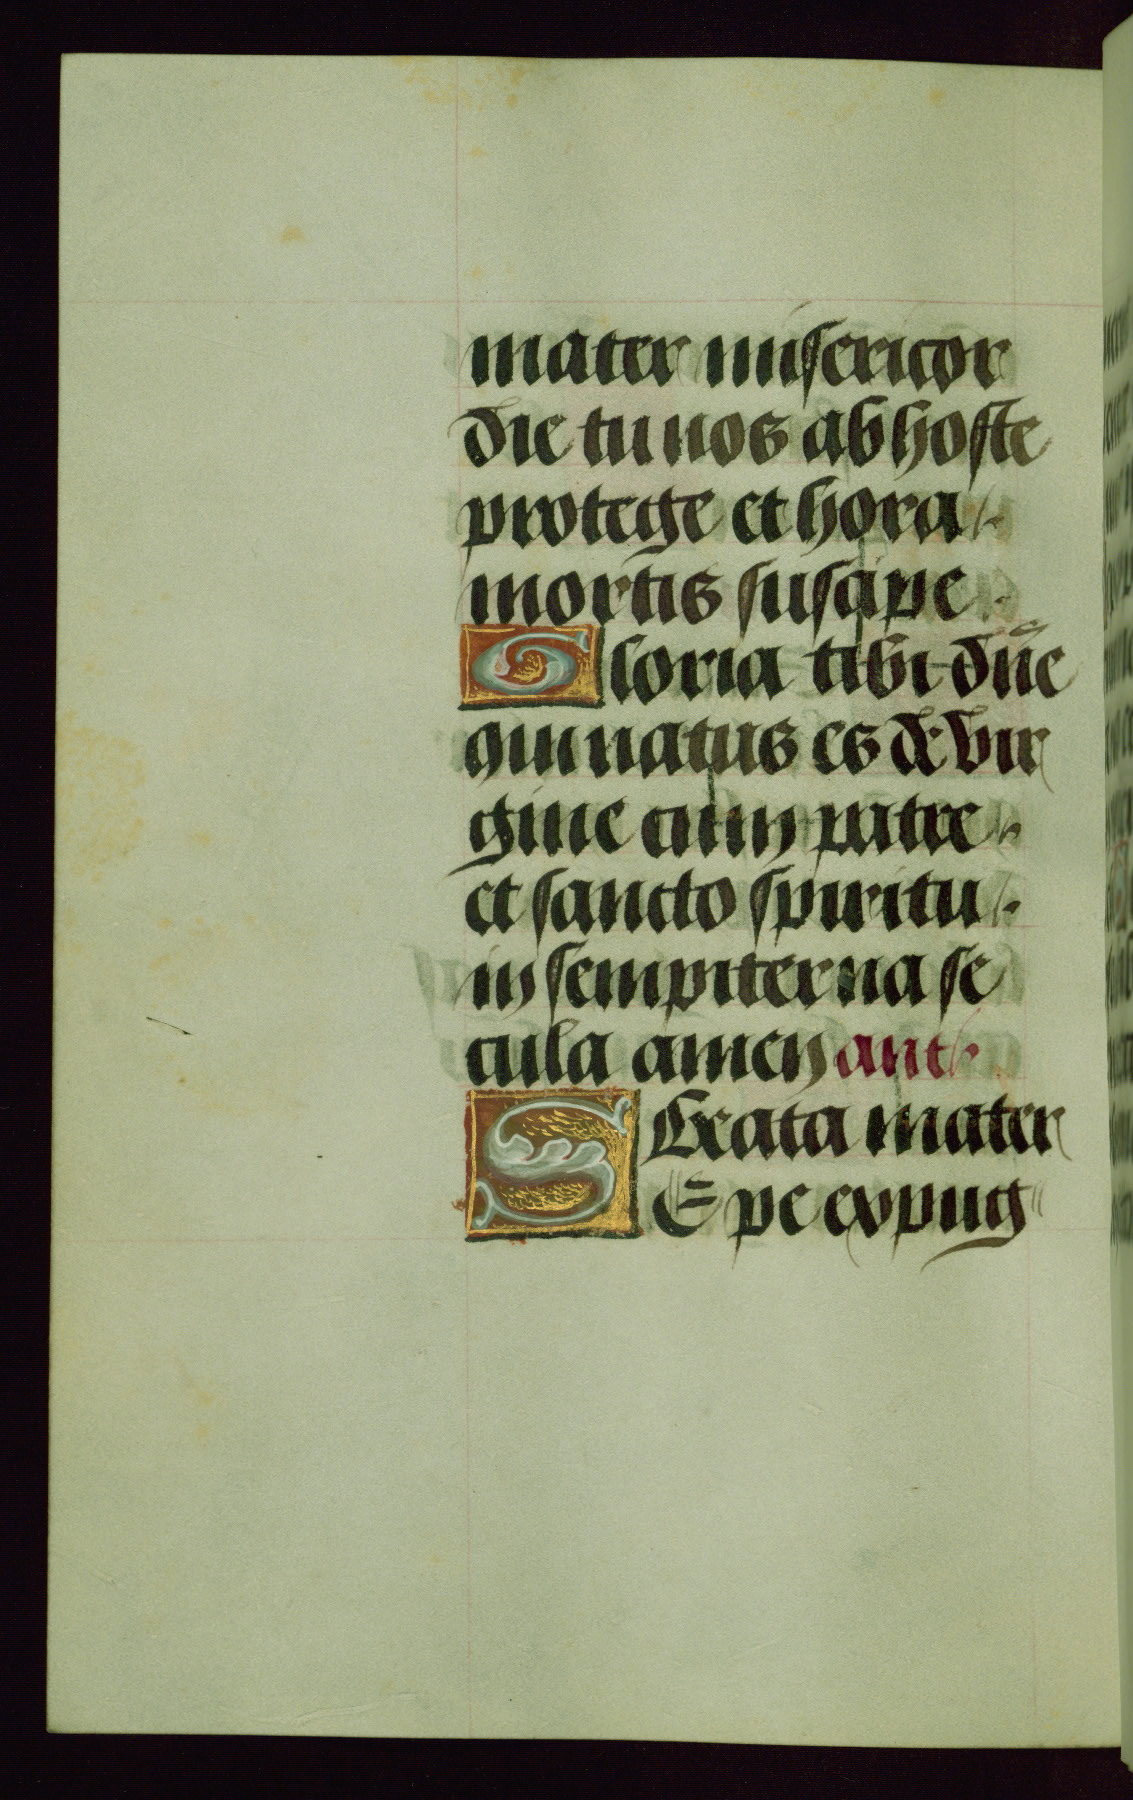 mater misericor
die tu nos ab hoste
protege et hora
mortis suscipe
Gloria tibi dñe
qui natus es de vir
gine cum patre
et sancto spiritu
in sempiterna se
cula amen ant
Beata mater
SEpe expug